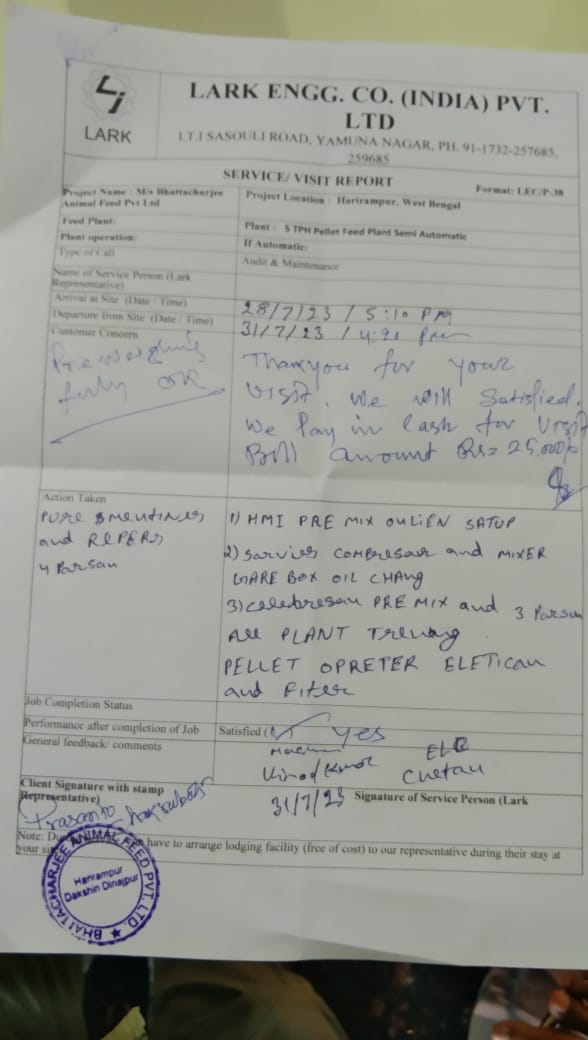 LARK
LARK ENGG. CO. (INDIA) PVT.
LTD
I.T.I SASOULI ROAD, YAMUNA NAGAR, PH. 91-1732-257685,
259685
SERVICE/ VISIT REPORT
Format: LEC/P-38
Project Name : M/s Bhattacharjee
Animal Feed Pvt Ltd
Project Location : Harirampur, West Bengal
Feed Plant:
Plant : 5 TPH Pellet Feed Plant Semi Automatic
Plant operation:
If Automatic:
Type of Call
Audit & Maintenance
Name of Service Person (Lark
Representative)
Arrival at Site (Date / Time)
28/7/23 / 5:10 PM
Departure from Site (Date / Time)
31/7/23 / 4:20 Pm
Customer Concern
fully OK
Thankyou for your
Visit. We will Satisfied.
We Pay in Cash for Visit
Bill amount Rs= 25,000/-
Action Taken
and REPERS
4 Parsan
1) HMI PRE MIX SATUP
2) Sarvies COMPRESAR and MIXER
GARE BOX OIL CHANG
3) PRE MIX and 3 Parsan
All PLANT
PELLET OPRETER ELETICAN
and FITER
Job Completion Status
Performance after completion of Job
Satisfied ( yes
General feedback/ comments
Vinod Kumar
ELE
Chetan
Client Signature with stamp
Representative)
31/7/23 Signature of Service Person (Lark
Note: have to arrange lodging facility (free of cost) to our representative during their stay at
your
BHATTACHARJEE ANIMAL FEED PVT. LTD.
Harirampur
Dakshin Dinajpur